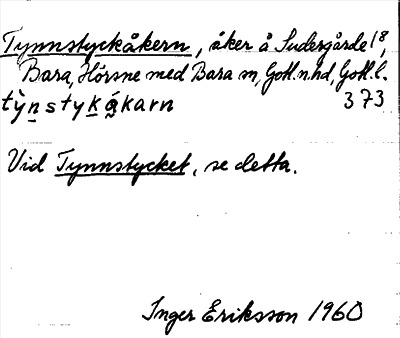 Tynnstyckåkern, åker å Sudergårde 1⁸,
Bara, Hörsne med Bara sn, Gotl. n. hd, Gotl. l.
tỳn̲styk̲ák̲arn 373
Vid Tynnstycket, se detta.
Inger Eriksson 1960